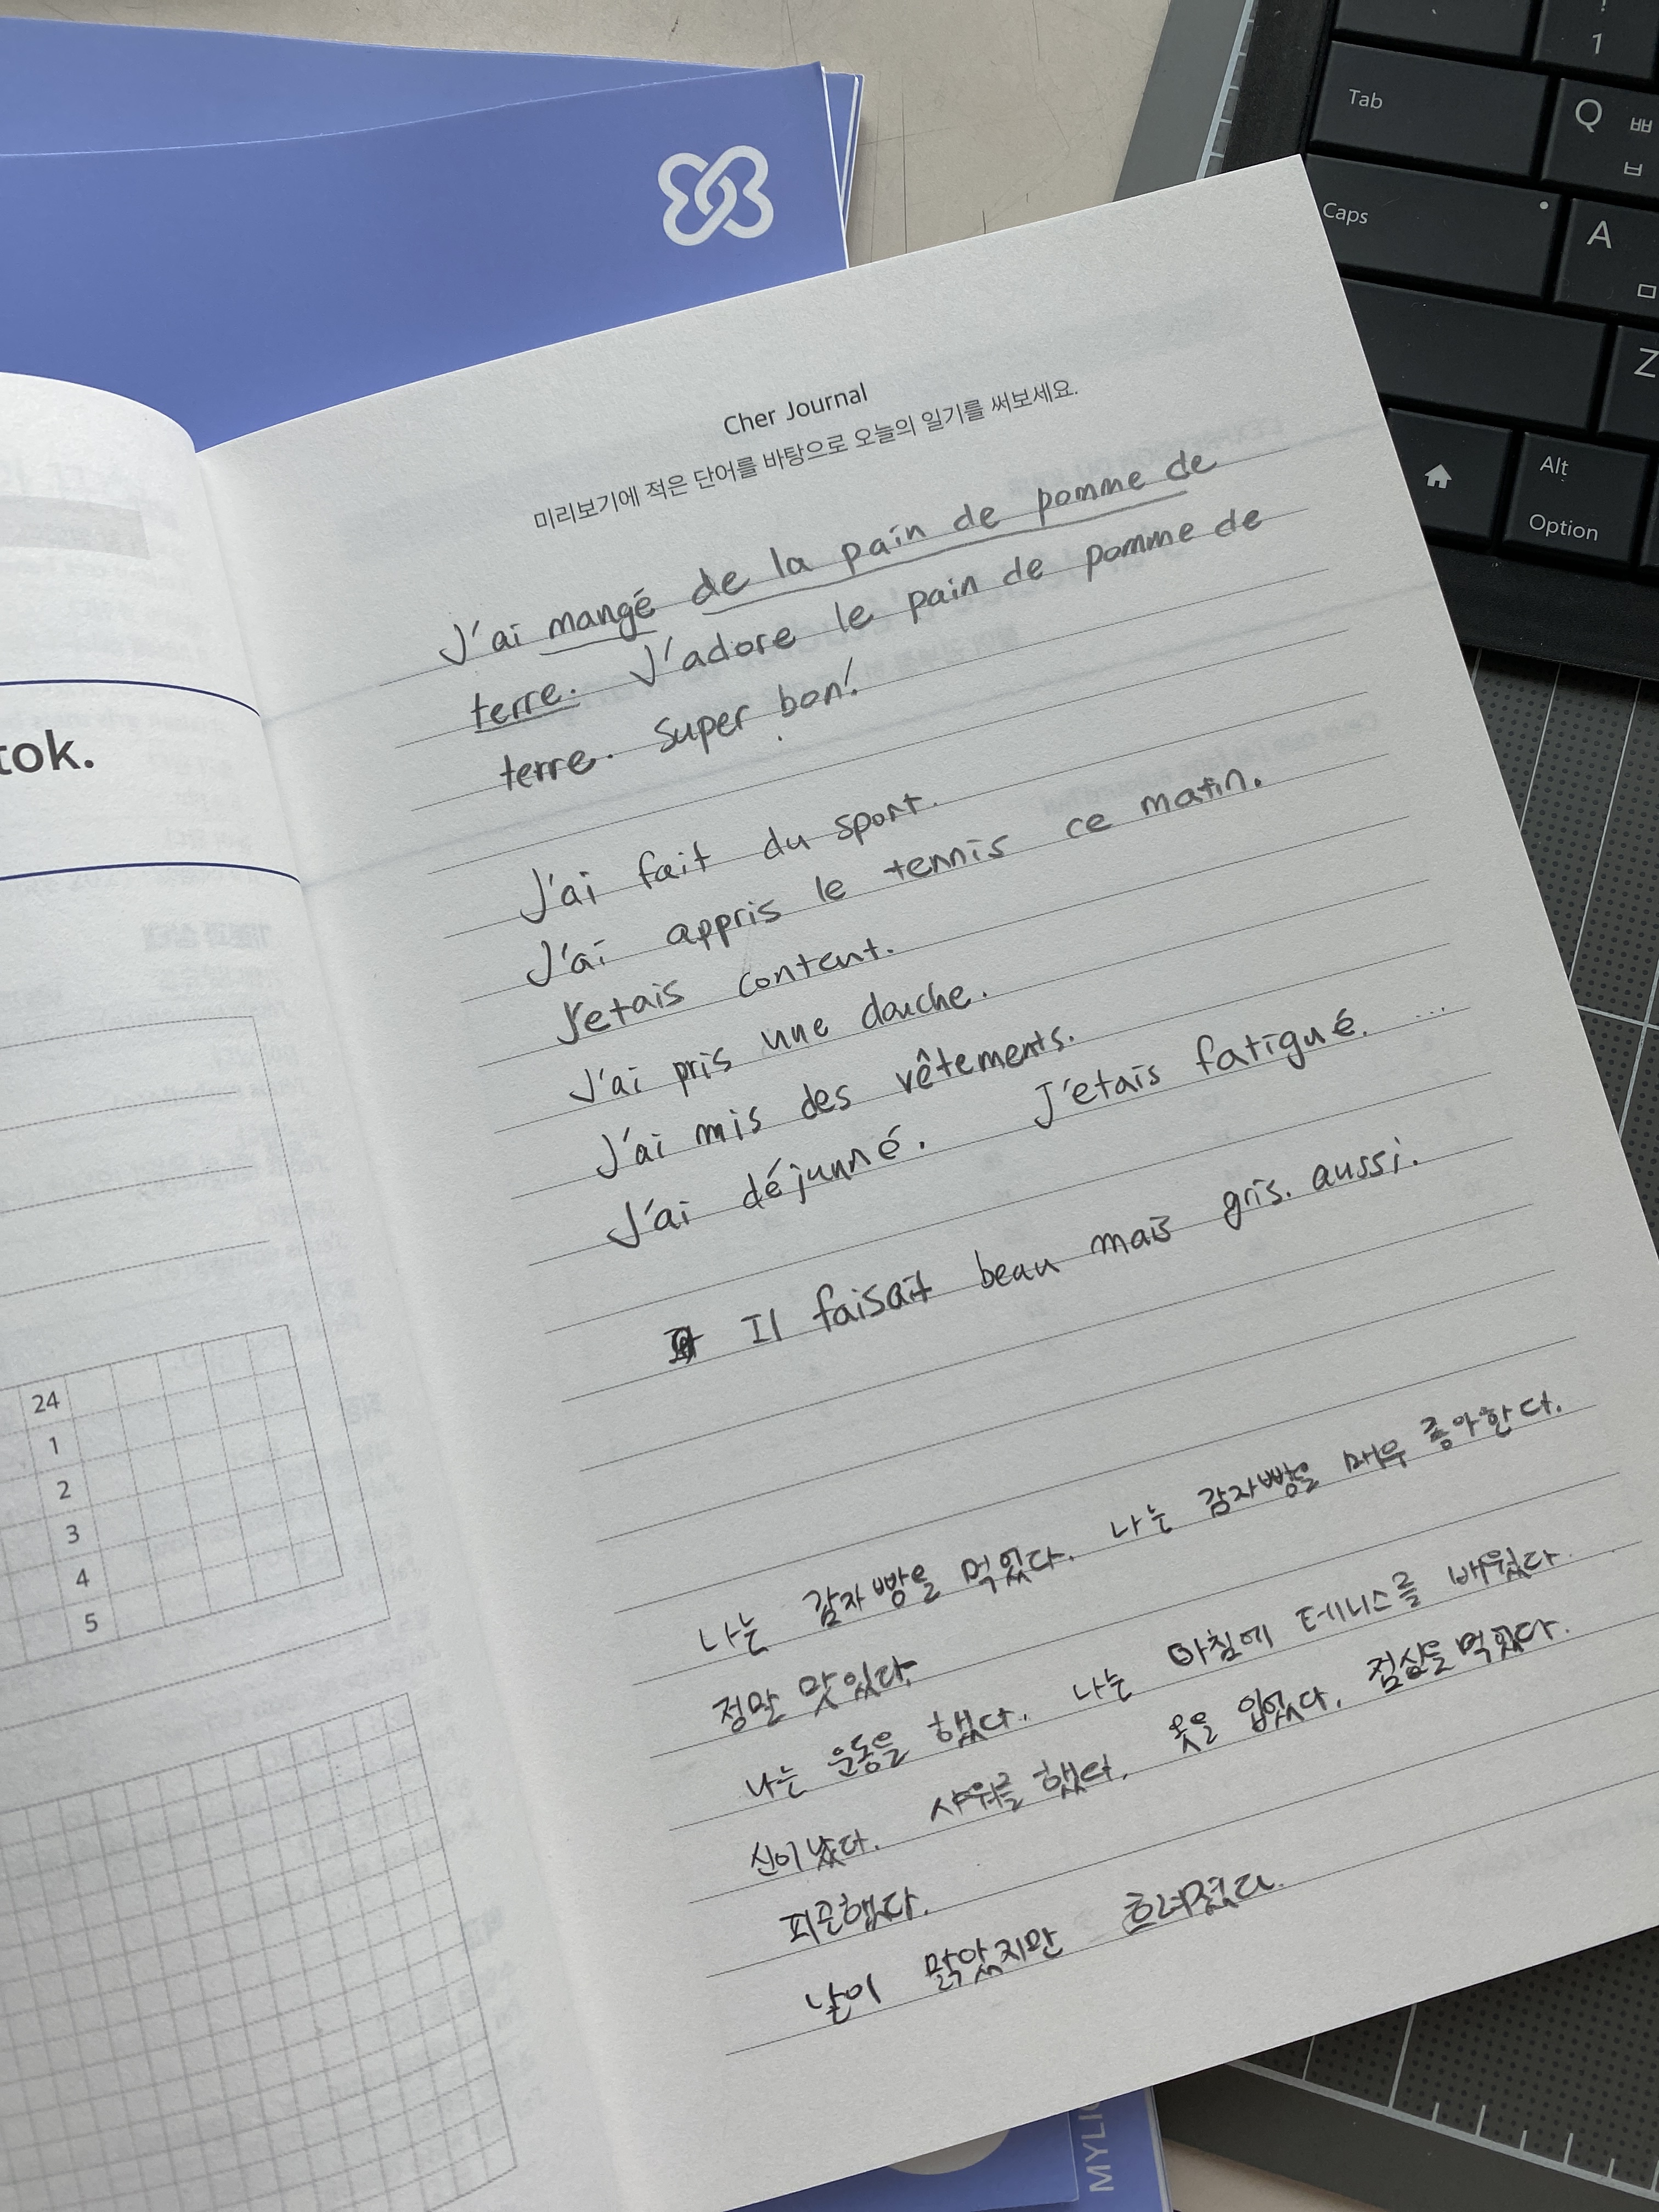 Cher Journal
미리보기에 적은 단어를 바탕으로 오늘의 일기를 써보세요.
J'ai mangé de la pain de pomme de
terre. J'adore le pain de pomme de
terre. Super bon!
J'ai fait du sport.
J'ai appris le tennis ce matin.
J'etais content.
J'ai pris une douche.
J'ai mis des vêtements.
J'ai déjunné. J'etais fatigué. ...
Il faisait beau mais gris. aussi.
나는 감자빵을 먹었다. 나는 감자빵을 매우 좋아한다.
정말 맛있다.
나는 운동을 했다. 나는 아침에 테니스를 배웠다.
신이 났다. 샤워를 했다. 옷을 입었다. 점심을 먹었다.
피곤했다.
날이 맑았지만 흐려졌다.
tok.
24
1
2
3
4
5
Tab
Q ㅃ
ㅂ
!
1
Caps
A
ㅁ
Z
Alt
Option
MYLI